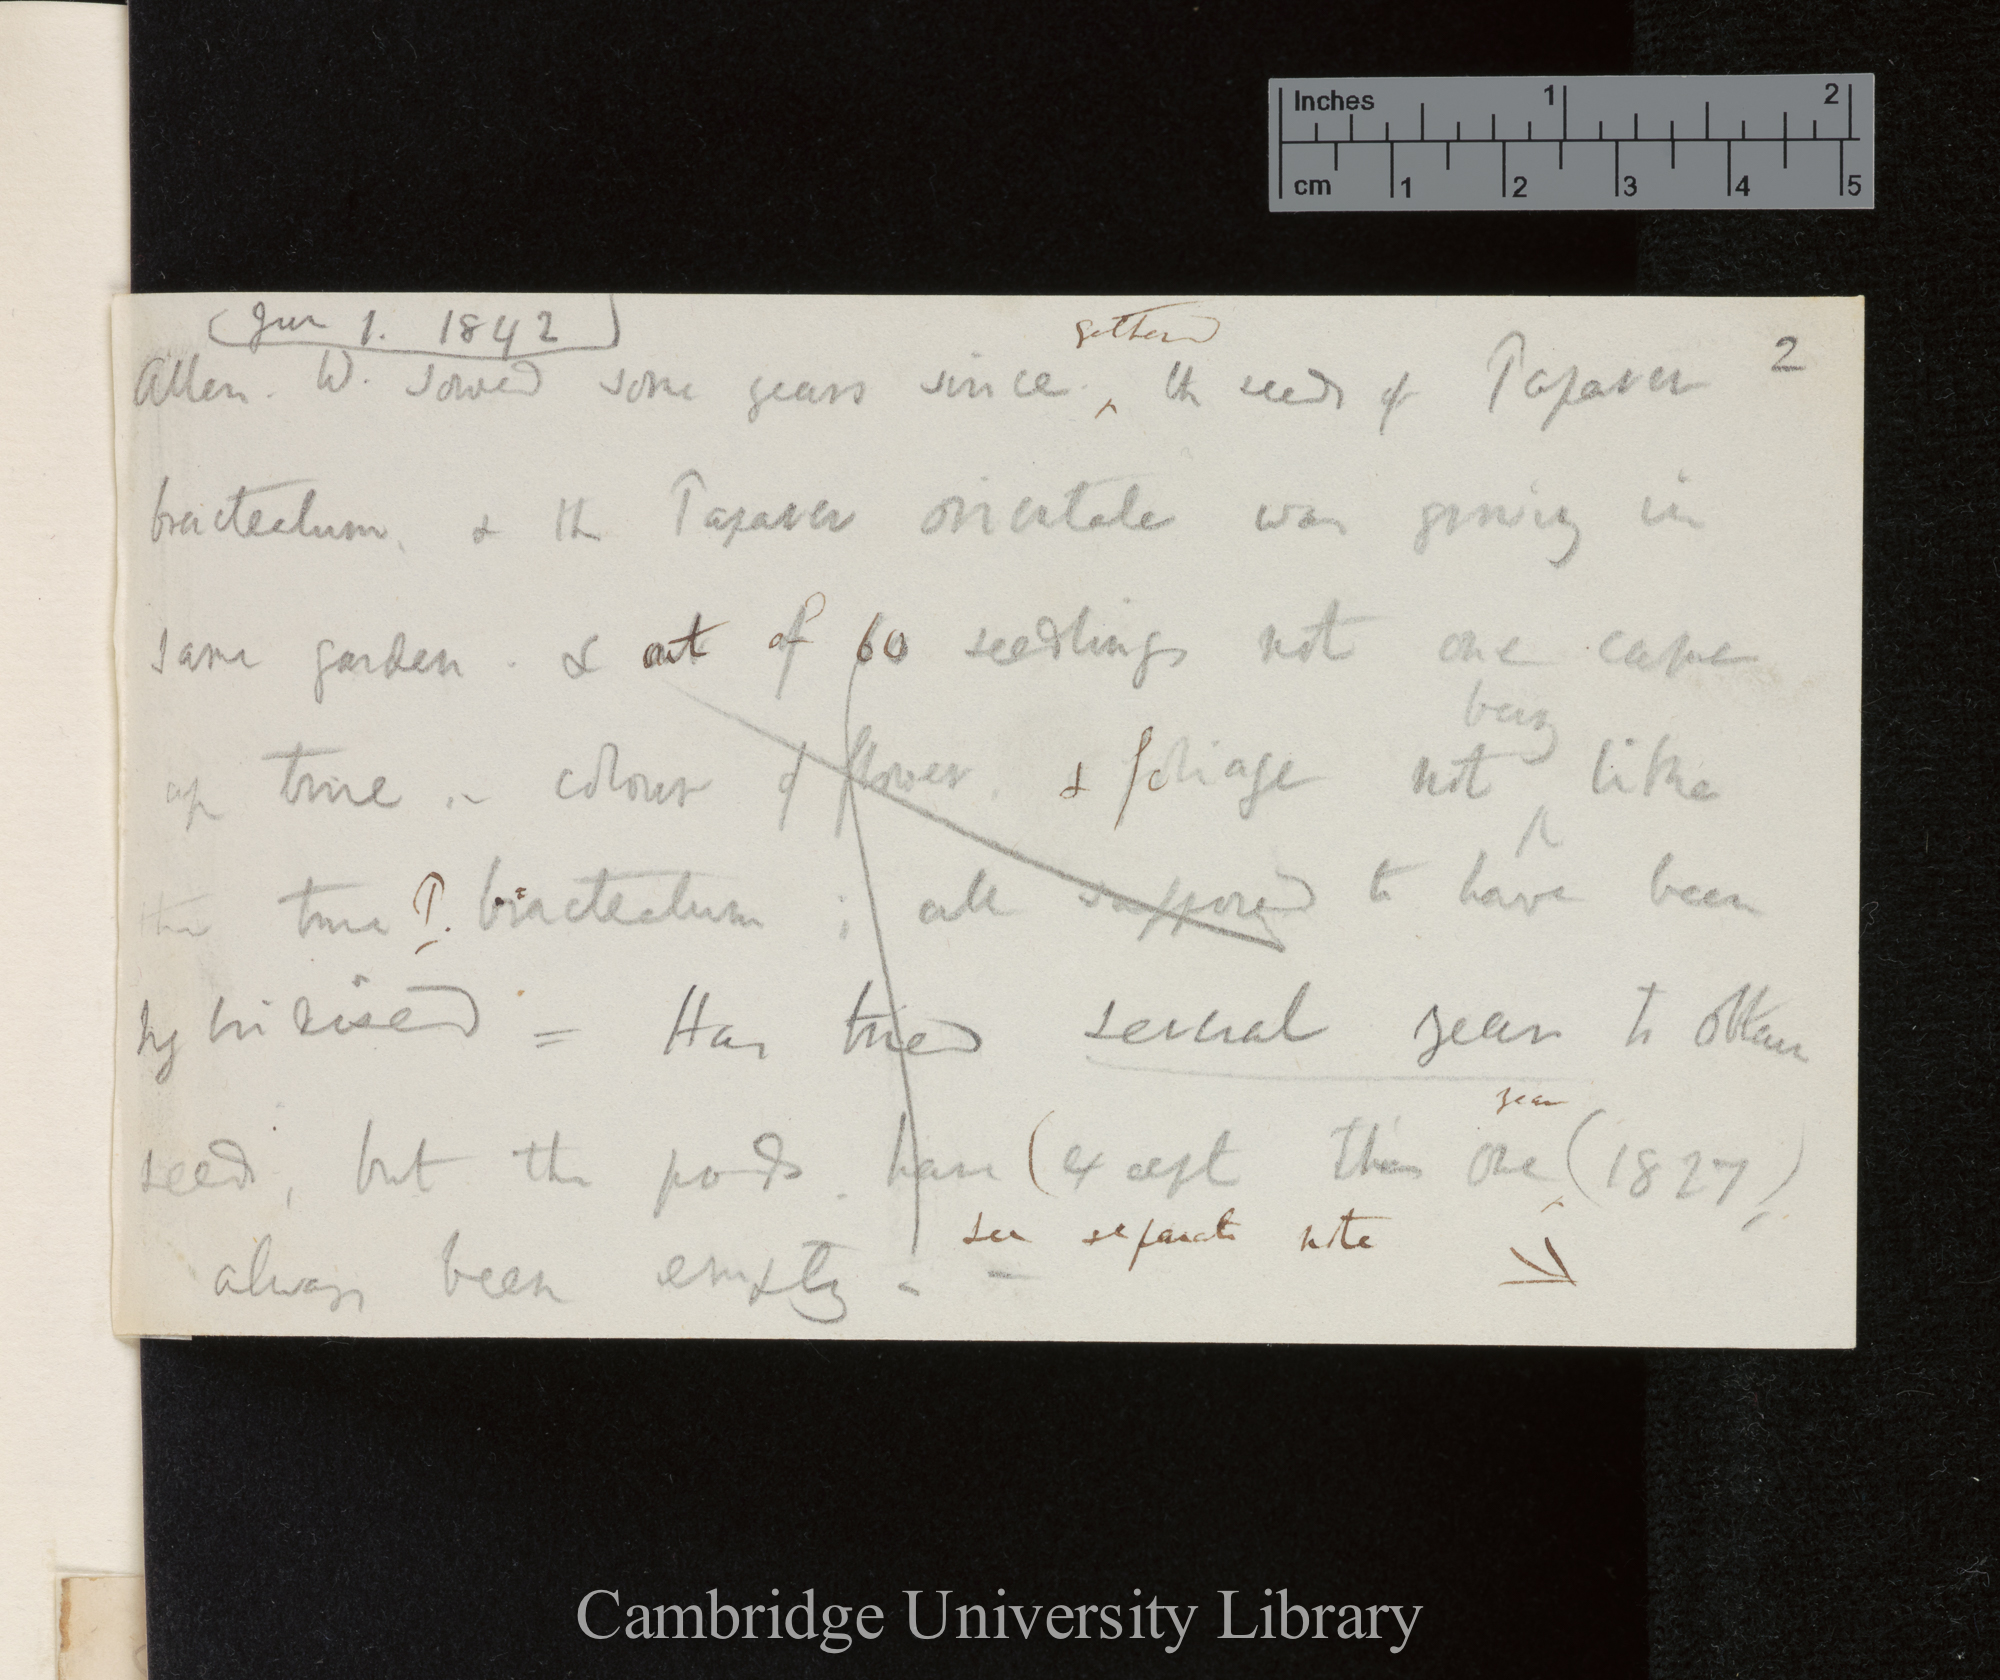 Inches 1 2
cm 1 2 3 4 5
(Jun 1. 1842)
2
gathered
Allen. W. sowed some years since ^ the seeds of Papaver
bracteatum, & the Papaver orientale was growing in
same garden. & out of 60 seedlings not one came
up true in colour of flower. & foliage not like
being
the true P. bracteatum; all supposed to have been
hybridised = Has tried several years to obtain
year
seeds, but the pods. have (except this one (1827)
see separate note
always been empty. —
Cambridge University Library